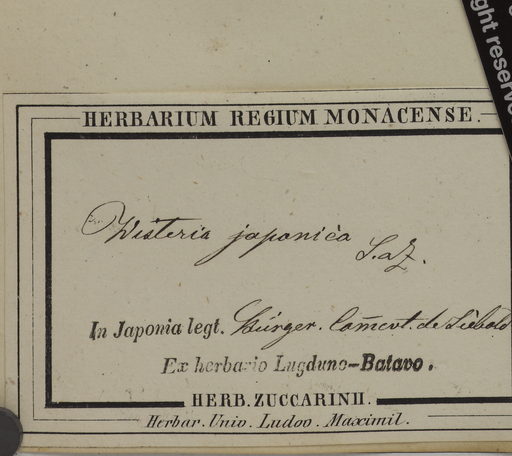 ght reserve
HERBARIUM REGIUM MONACENSE.
Wisteria japonica
S.&Z.
In Japonia legt. Bürger. Com̄ent. de Siebold
Ex herbario Lugduno-Batavo.
HERB. ZUCCARINII.
Herbar. Univ. Ludov. Maximil.